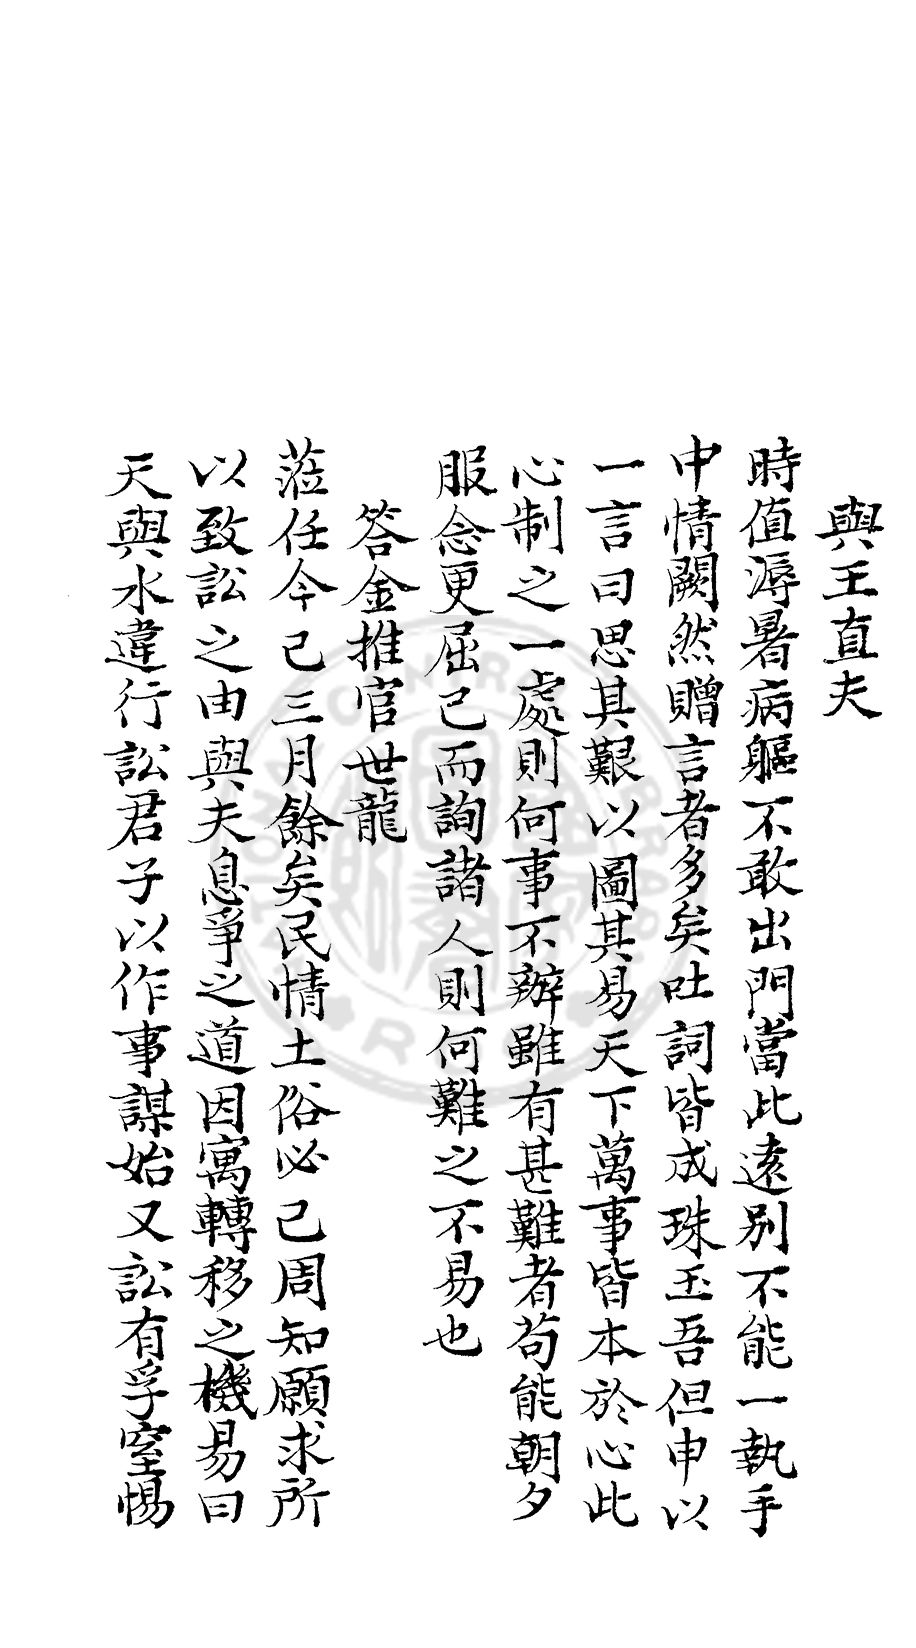 與王直夫
時值溽暑病軀不敢出門當此遠別不能一執手
中情闕然贈言者多矣吐詞皆成珠玉吾但申以
一言曰思其艱以圖其易天下萬事皆本於心此
心制之一處則何事不辦雖有甚難者苟能朝夕
服念更屈己而詢諸人則何難之不易也
答金推官世龍
蒞任今已三月餘矣民情土俗必已周知願求所
以致訟之由與夫息爭之道因寓轉移之機易曰
天與水違行訟君子以作事謀始又訟有孚窒惕